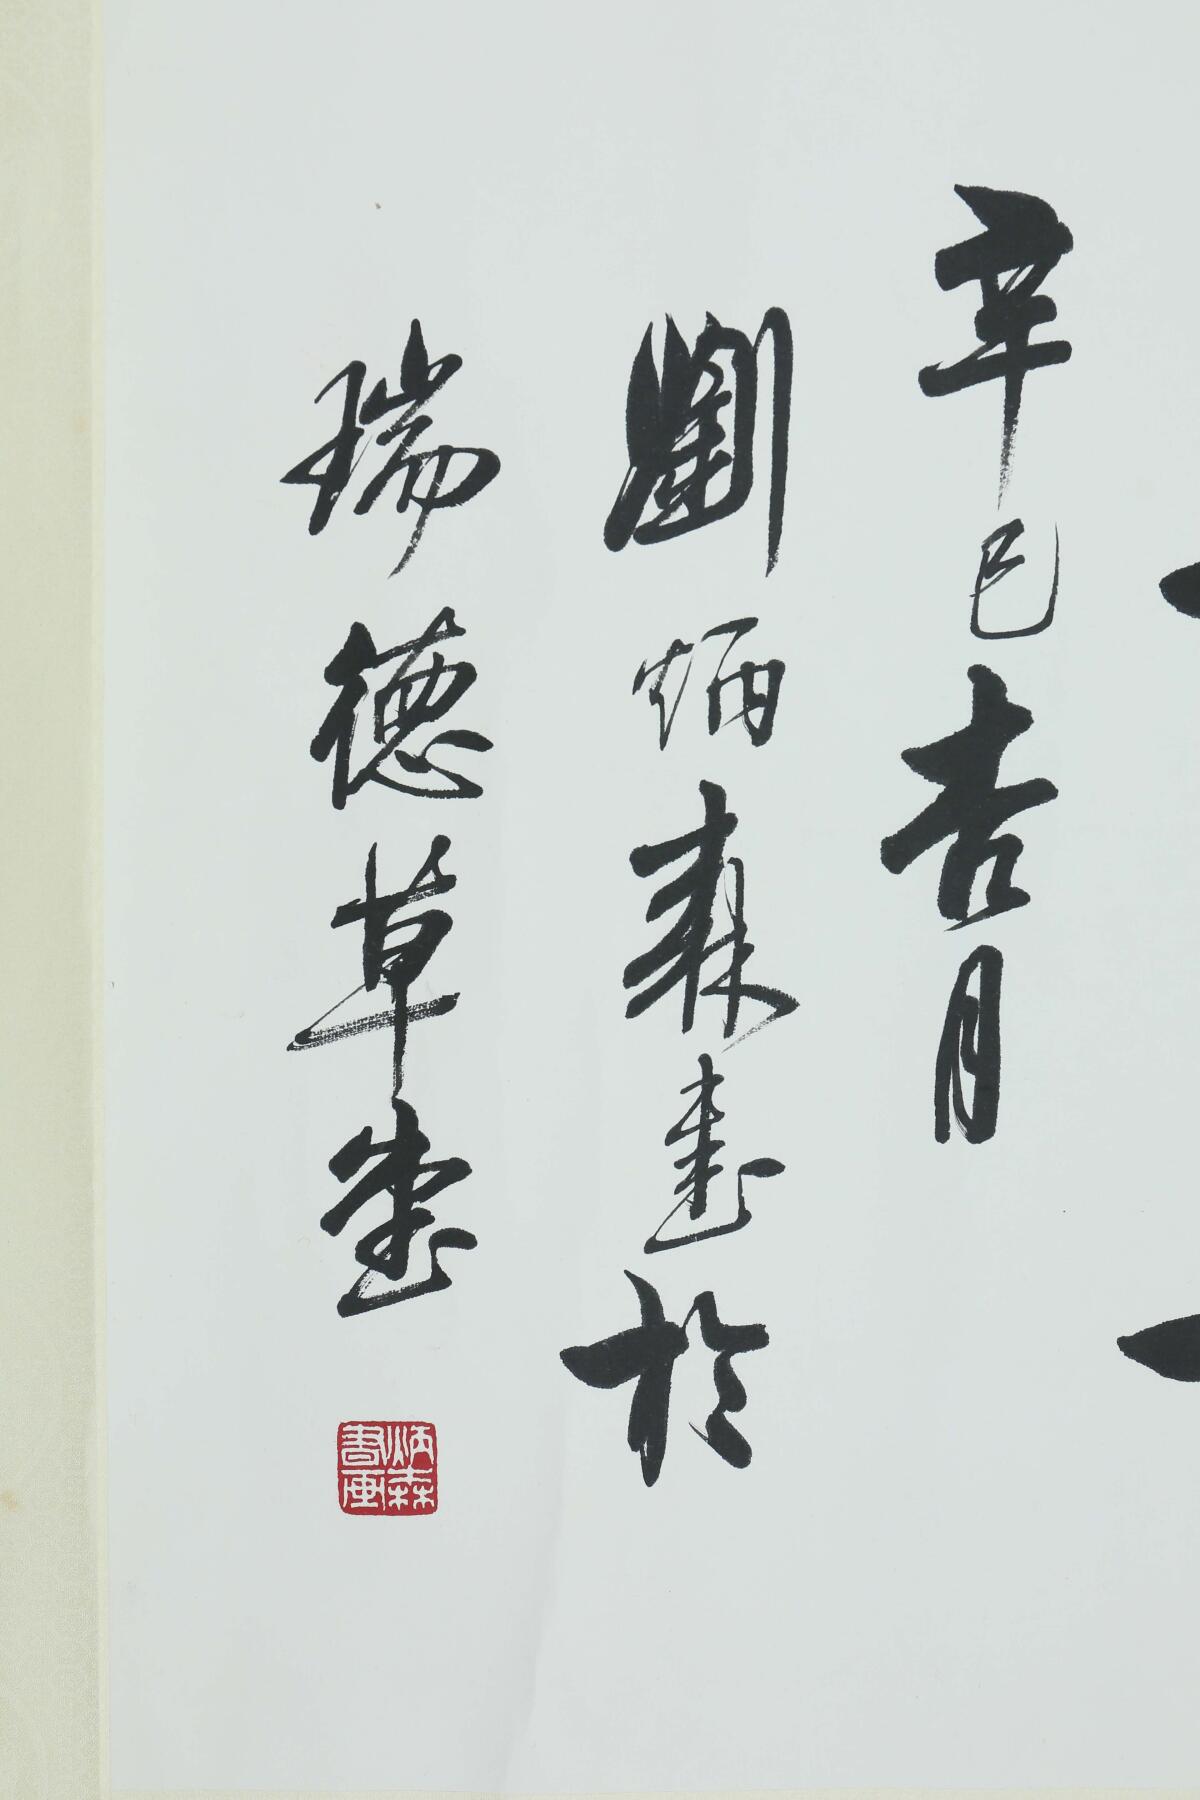 辛巳吉月
劉炳森畫於
瑞德草堂
炳森
書画